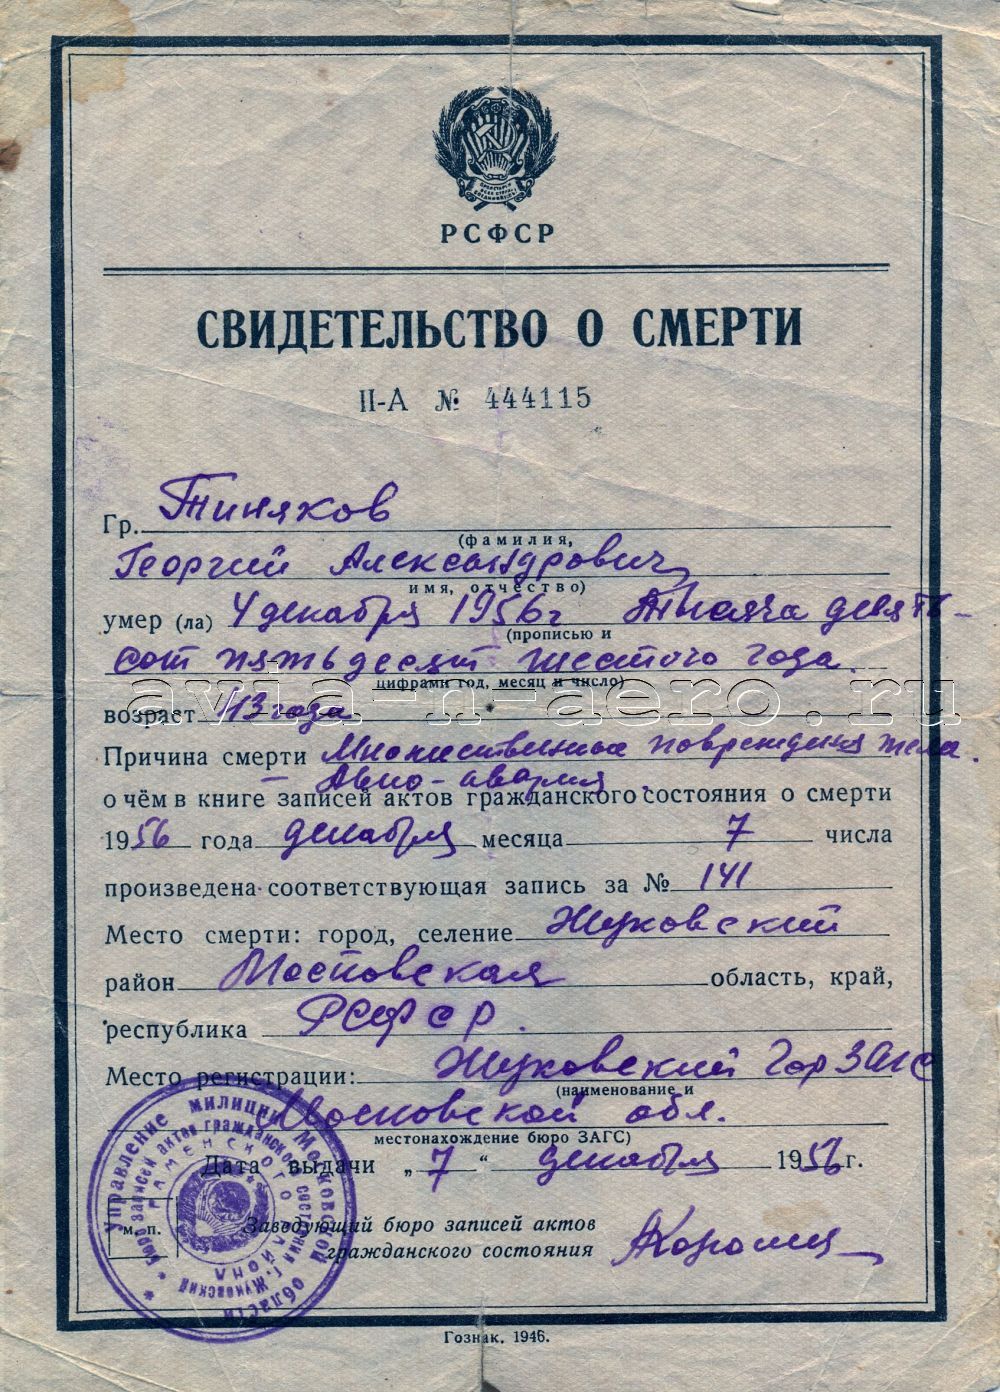 РСФСР
СВИДЕТЕЛЬСТВО О СМЕРТИ
II-А № 444115
Гр. Тиняков
(фамилия,
Георгий Александрович
имя, отчество)
умер (ла) 4 декабря 1956 г Тысяча девять-
(прописью и
сот пятьдесят шестого года.
цифрами год, месяц и число)
avia-n-aero.ru
возраст 43 года
Причина смерти Множественные повреждения тела.
– Авио-авария.
о чём в книге записей актов гражданского состояния о смерти
1956 года декабря месяца 7 числа
произведена соответствующая запись за № 141
Место смерти: город, селение Жуковский
район Московская область, край,
республика РСФСР.
Место регистрации: Жуковский Гор ЗАГС
(наименование и
Московской обл.
местонахождение бюро ЗАГС)
Дата выдачи „7“ декабря 1956 г.
м. п.
Заведующий бюро записей актов
гражданского состояния
Управление милиции Московской области
Бюро записей актов гражданского состояния г. Жуковский
Раменского района
Гознак. 1946.